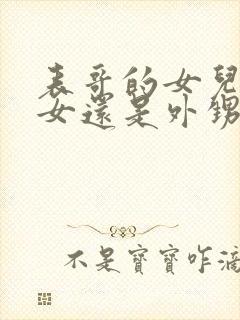 表哥的女兒
女還是外甥
不是寶寶咋滴